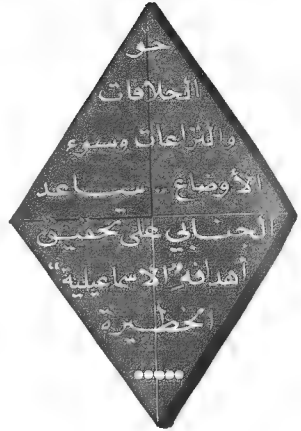 جو
الخلافات
والنزاعات وسوء
الأوضاع .. ساعد
الجنابي على تحقيق
أهدافه "الاسماعيلية"
الخطيرة